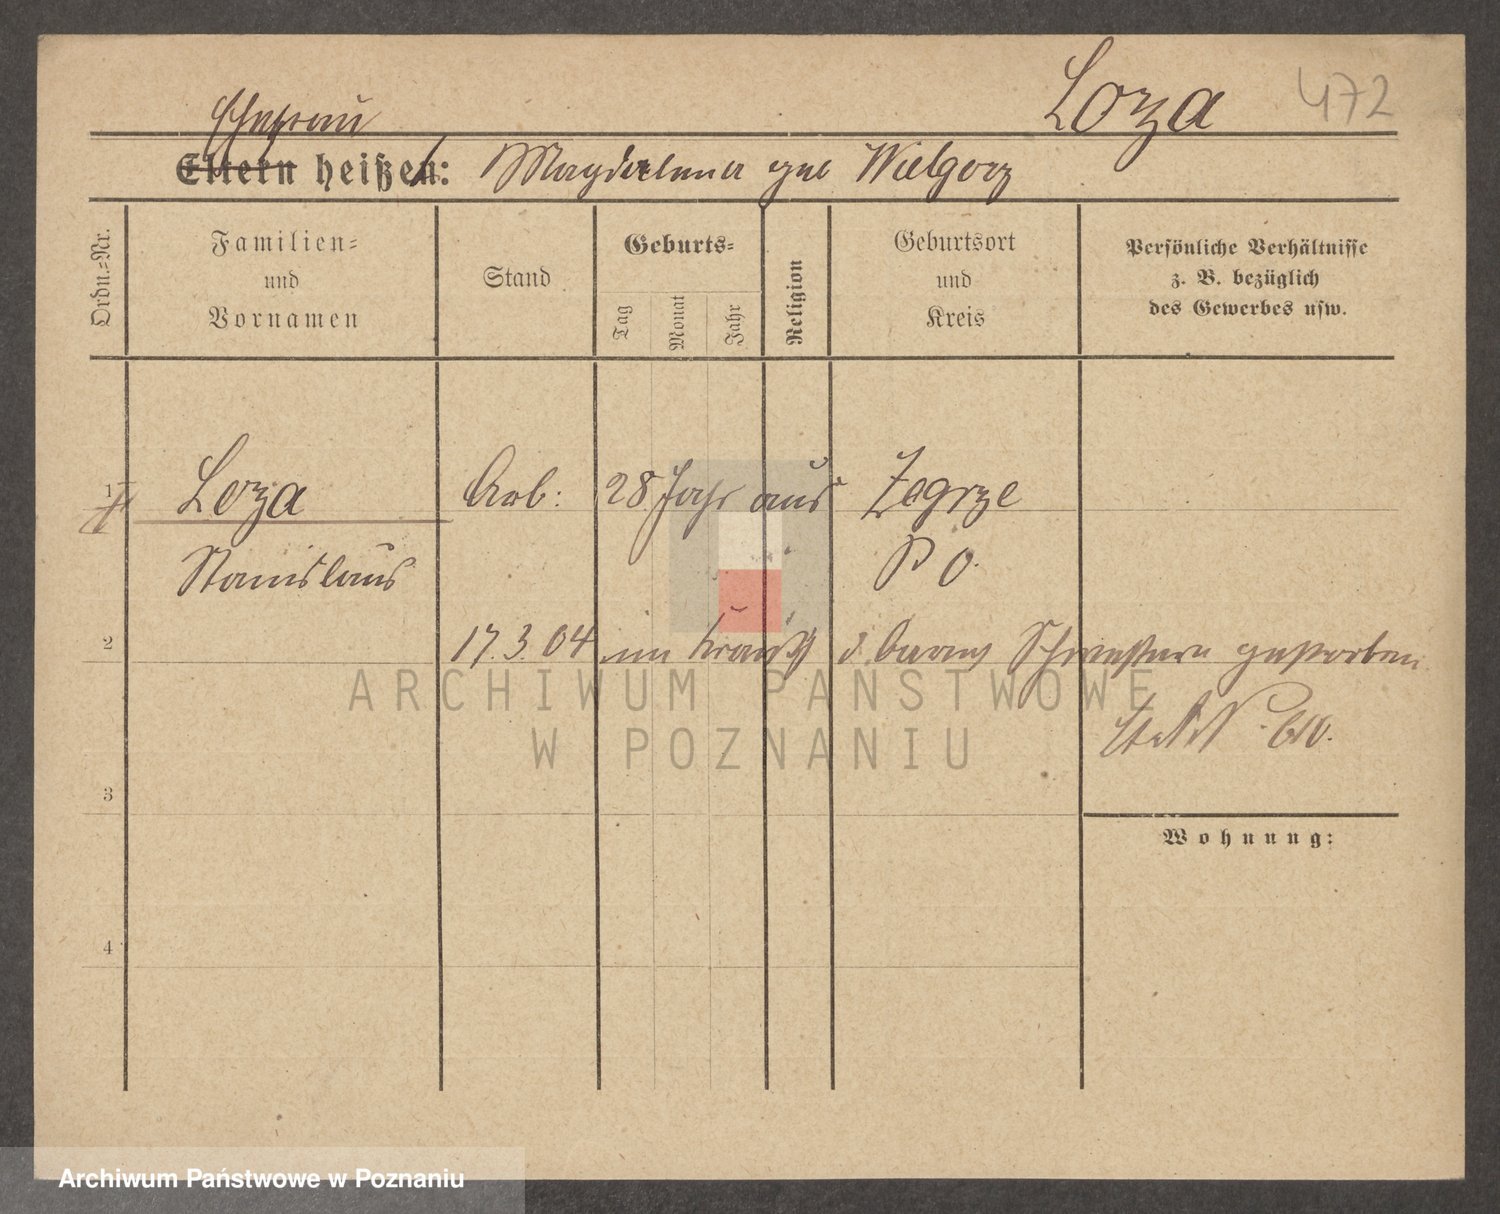 Loza 472
Ehefrau
Eltern heißen: Magdalena geb Wielgorz
Ordn.-Nr.
Familien- und Vornamen
Stand
Geburts-
Tag
Monat
Jahr
Religion
Geburtsort und Kreis
Persönliche Verhältnisse
z. B. bezüglich
des Gewerbes usw.
1 Loza Arb: 28 Jahr aus Zegrze
Stanislaus P O.
2 17.3.04 im Krankh d. Schwestern gestorben
3
Wohnung:
4
ARCHIWUM PAŃSTWOWE
W POZNANIU
Archiwum Państwowe w Poznaniu